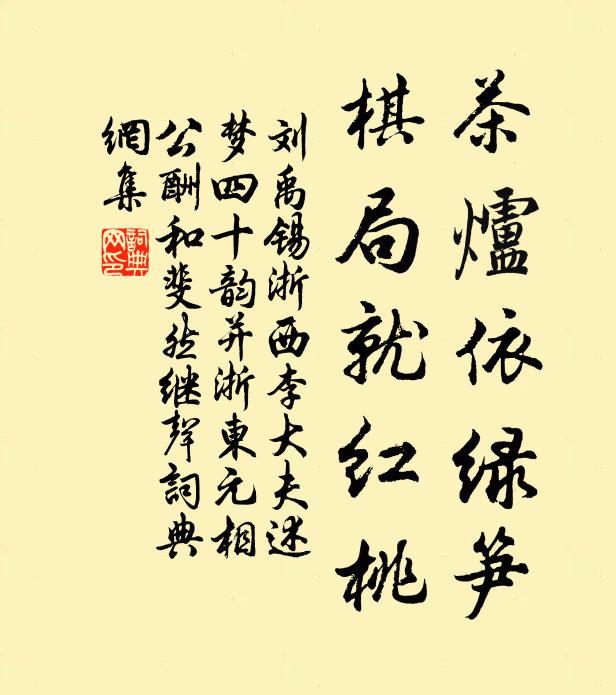 茶爐依绿笋
棋局就红桃
刘禹锡浙西李大夫述
梦四十韵并浙東元相
公酬和斐然继聲詞典
網集
詞典
网印